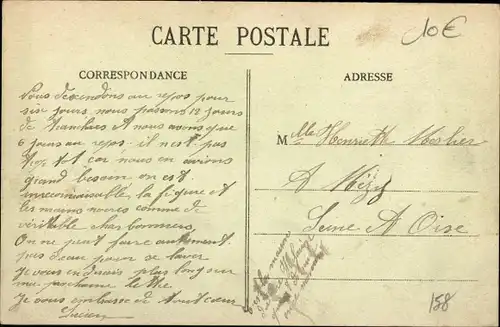 CARTE POSTALE
10€
CORRESPONDANCE
ADRESSE
Nous descendons au repos pour
six jours nous passons 12 jours
de tranchées et nous avons que
6 jours au repos il n'est pas
trop tôt car nous en avions
grand besoin on est
inreconnaisable la figure et
les mains noires comme de
véritable charbonniers
On ne peut faire autrement
pas d'eau pour se laver
Je vous en dirais plus long sur
ma prochaine lettre
Je vous embrasse de tout cœur
Lucien
Mlle Henriette
A Mézy
Seine A Oise
158